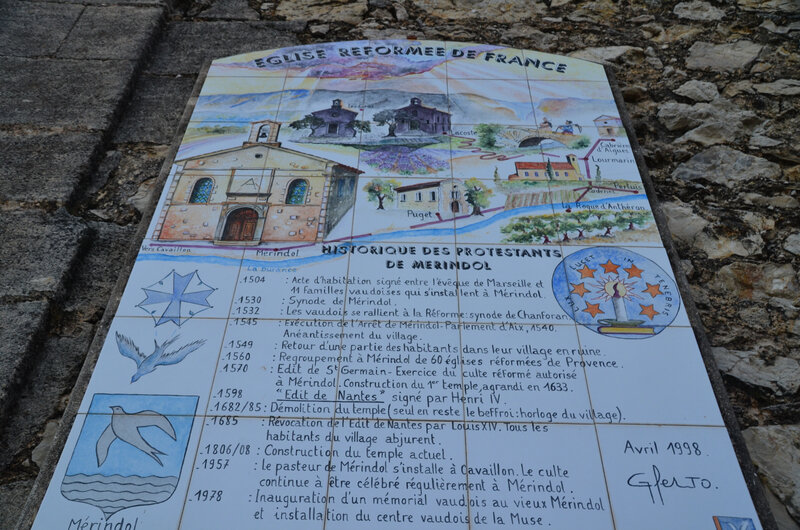 EGLISE REFORMEE DE FRANCE
Lacoste
Cabrière
d'Aigues
Lourmarin
Pertuis
La Roque d'Anthéron
Puget
Vers Cavaillon
Mérindol
La Durance
HISTORIQUE DES PROTESTANTS
DE MERINDOL
LUX LUCET IN TENEBRIS
1504 : Acte d'habitation signé entre l'évêque de Marseille et
11 Familles vaudoises qui s'installent à Mérindol.
1530 : Synode de Mérindol.
1532 : Les vaudois se rallient à la Réforme: synode de Chanforan
1545 : Exécution de l'Arrêt de Mérindol-Parlement d'Aix, 1540.
Anéantissement du village.
1549 : Retour d'une partie des habitants dans leur village en ruine.
1560 : Regroupement à Mérindol de 60 églises réformées de Provence.
1570 : Edit de St Germain - Exercice du culte réformé autorisé
à Mérindol. Construction du 1er temple, agrandi en 1633.
1598 : "Edit de Nantes" signé par Henri IV.
1682/85 : Démolition du temple (seul en reste le beffroi: horloge du village).
1685 : Révocation de l'Edit de Nantes par Louis XIV. Tous les
habitants du village abjurent.
1806/08 : Construction du temple actuel.
1957 : le pasteur de Mérindol s'installe à Cavaillon. Le culte
continue à être célébré régulièrement à Mérindol.
1978 : Inauguration d'un mémorial vaudois au vieux Mérindol
et installation du centre vaudois de la Muse.
Avril 1998.
Mérindol